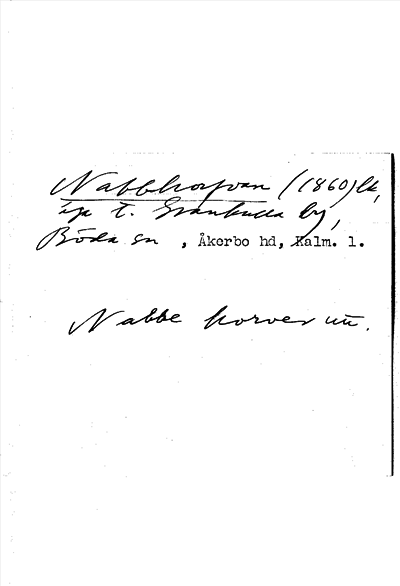 Nabbhorfvan (1860) lk,
äga t. Grankulla by,
Böda sn, Åkerbo hd, Kalm. l.
Nabbe horver